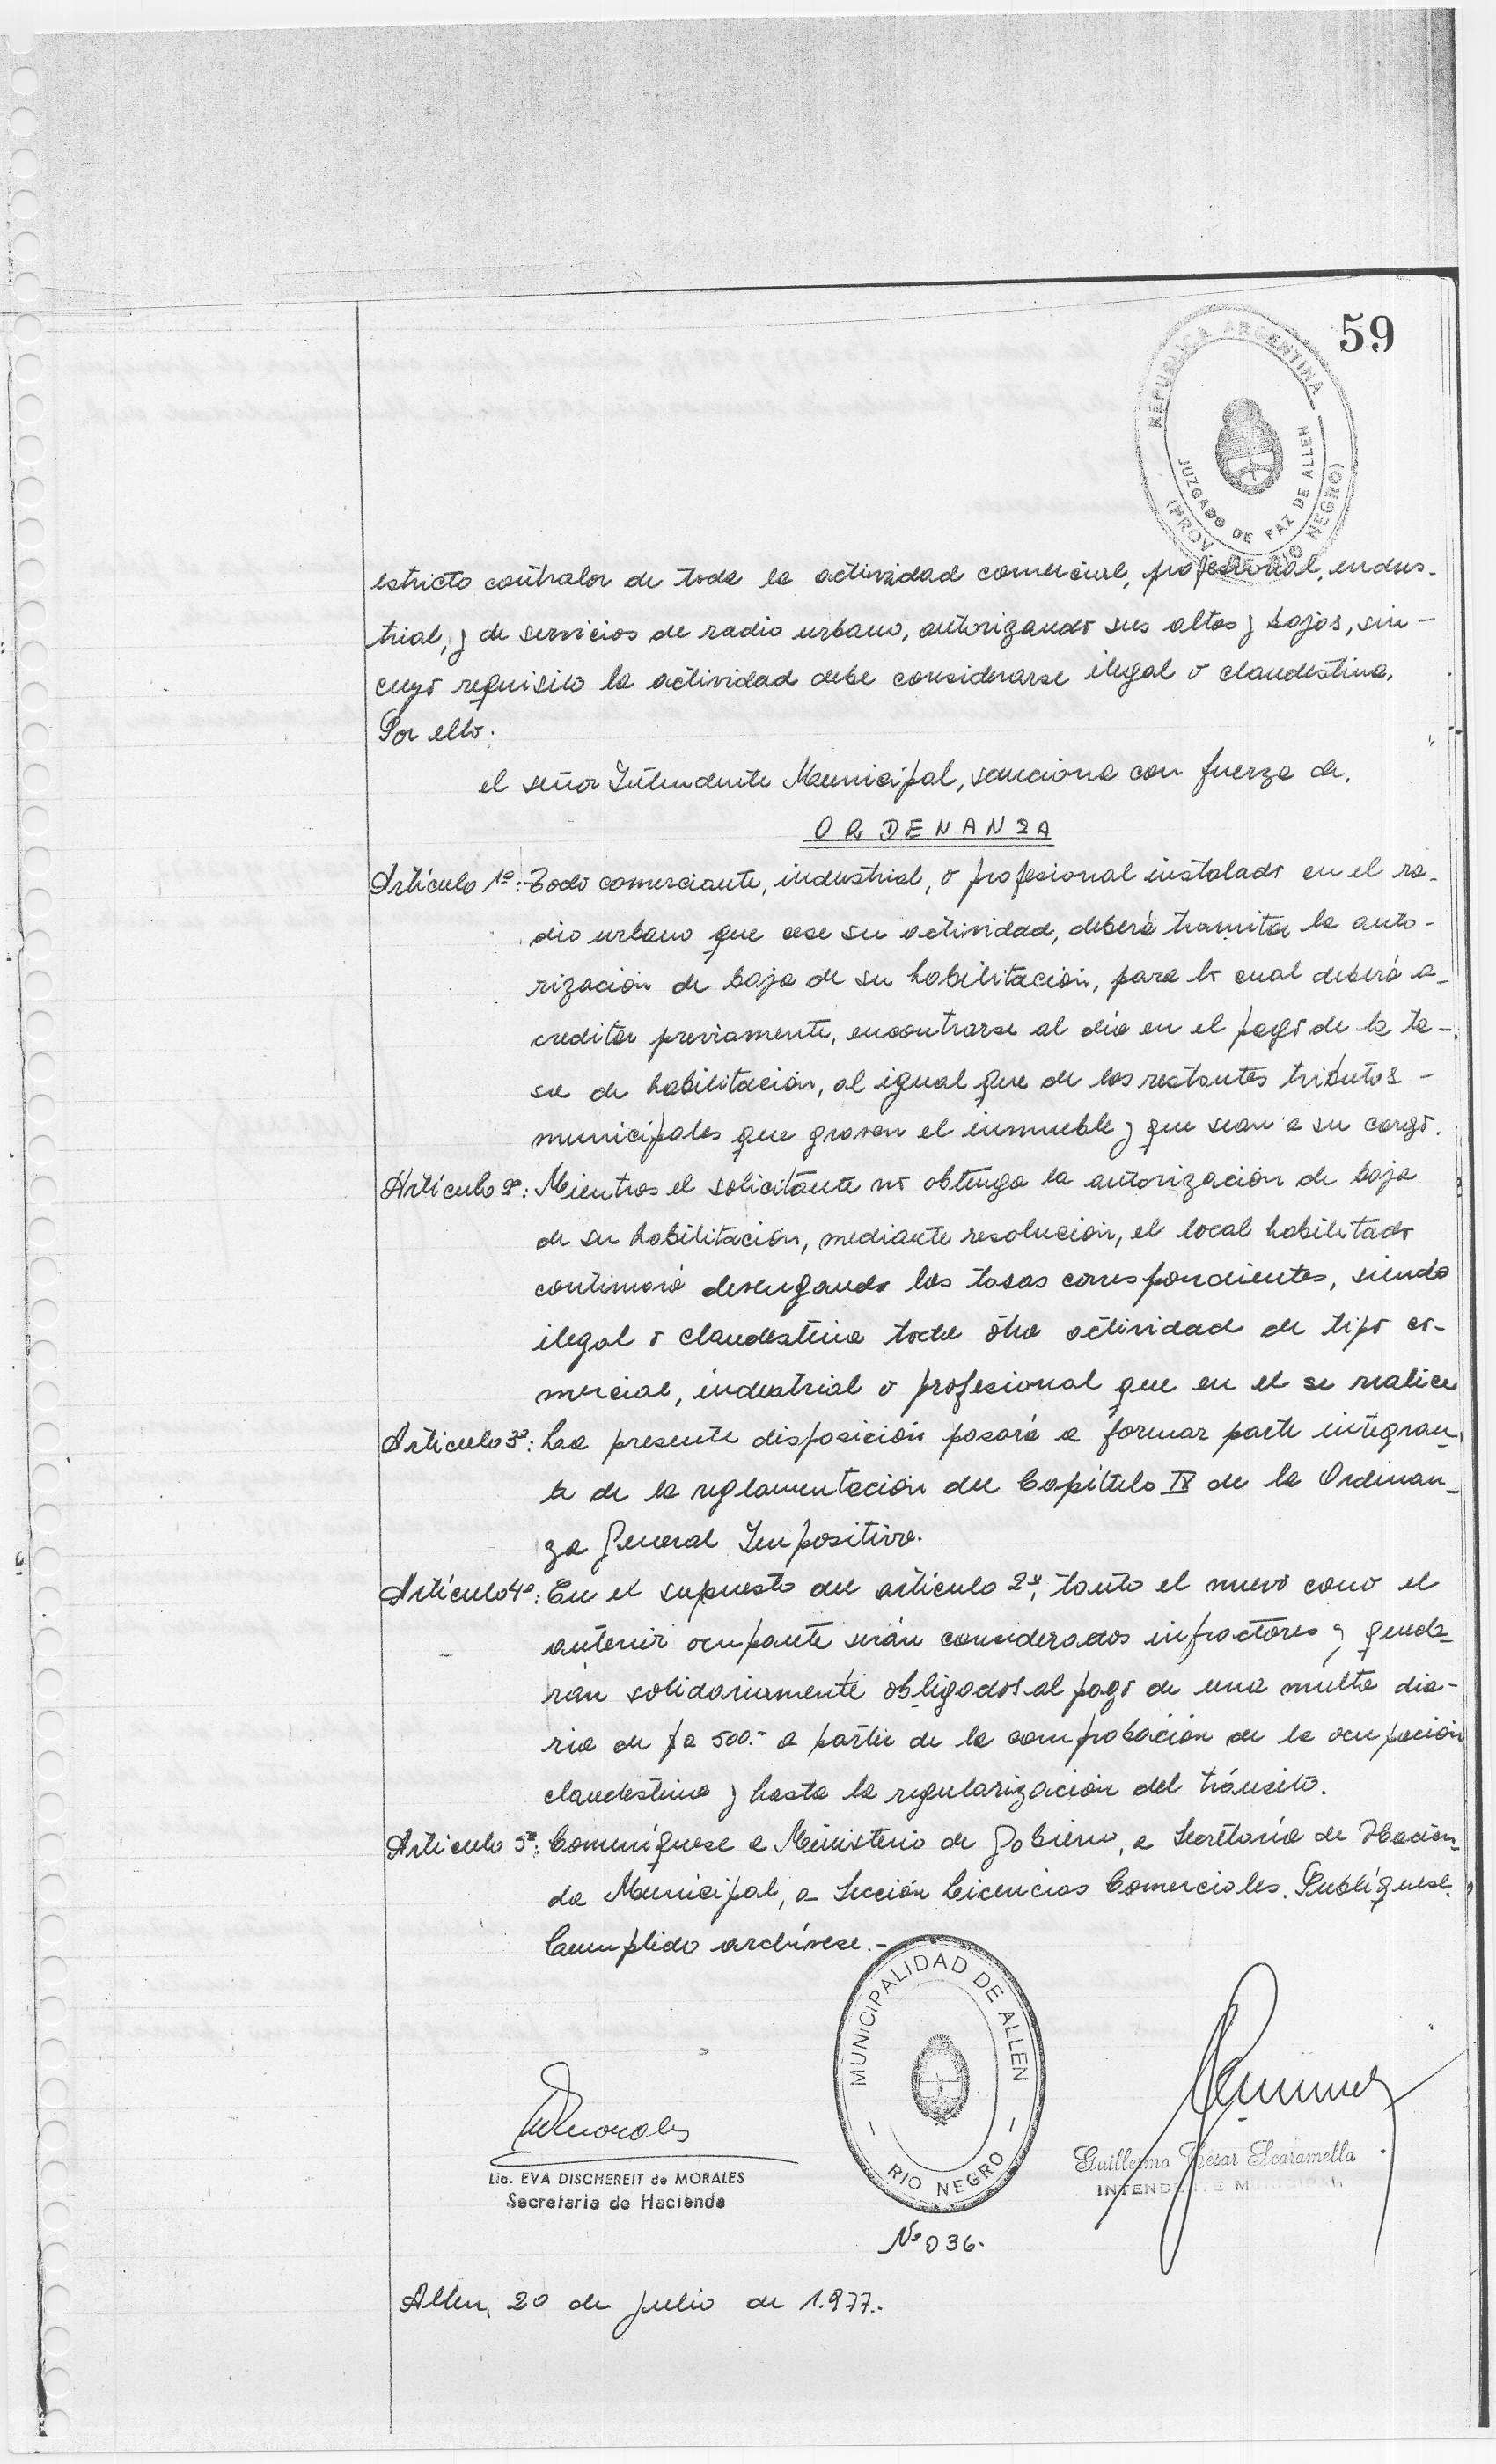 59
REPUBLICA ARGENTINA
JUZGADO DE PAZ DE ALLEN
(PROV. DE RIO NEGRO)
estricto contralor de toda la actividad comercial, profesional, indus-
trial, y de servicios de radio urbano, autorizando sus altas y bajas, sin-
cuyo requisito la actividad debe considerarse ilegal o clandestina.
Por ello.
el señor Intendente Municipal, sanciona con fuerza de.
ORDENANZA
Artículo 1º: Todo comerciante, industrial, o profesional instalado en el ra-
dio urbano que cese su actividad, deberá tramitar la auto-
rización de baja de su habilitación, para lo cual deberá a-
creditar previamente, encontrarse al día en el pago de la ta-
sa de habilitación, al igual que de los restantes tributos -
municipales que gravan el inmueble y que sean a su cargo.
Artículo 2º: Mientras el solicitante no obtenga la autorización de baja
de su habilitación, mediante resolución, el local habilitado
continuará devengando las tasas correspondientes, siendo
ilegal o clandestina toda otra actividad de tipo co-
mercial, industrial o profesional que en el se realice
Artículo 3º: La presente disposición pasará a formar parte integran-
te de la reglamentación del Capítulo IV de la Ordenan-
za General Impositiva.
Artículo 4º: En el supuesto del artículo 2º, tanto el nuevo como el
anterior ocupante serán considerados infractores y queda-
rán solidariamente obligados al pago de una multa dia-
ria de $a 500.- a partir de la comprobación de la ocupación
clandestina y hasta la regularización del tránsito.
Artículo 5º: Comuníquese a Ministerio de Gobierno, a Secretaría de Hacien-
da Municipal, a Sección Licencias Comerciales. Publíquese.
Cumplido archívese.-
MUNICIPALIDAD DE ALLEN
- RIO NEGRO -
Lic. EVA DISCHEREIT de MORALES
Secretaria de Hacienda
Guillermo César Scaramella
INTENDENTE MUNICIPAL
Nº 036.
Allen, 20 de julio de 1.977.-